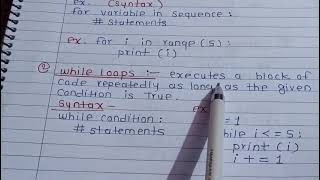 ex. (syntax)
for variable in sequence:
# statements
ex. for i in range(5):
print (i)
② while loops :- executes a block of
code repeatedly as long as the given
Condition is True.
Syntax - ex
while condition: = 1
# statements while i <= 5:
print (i)
i += 1